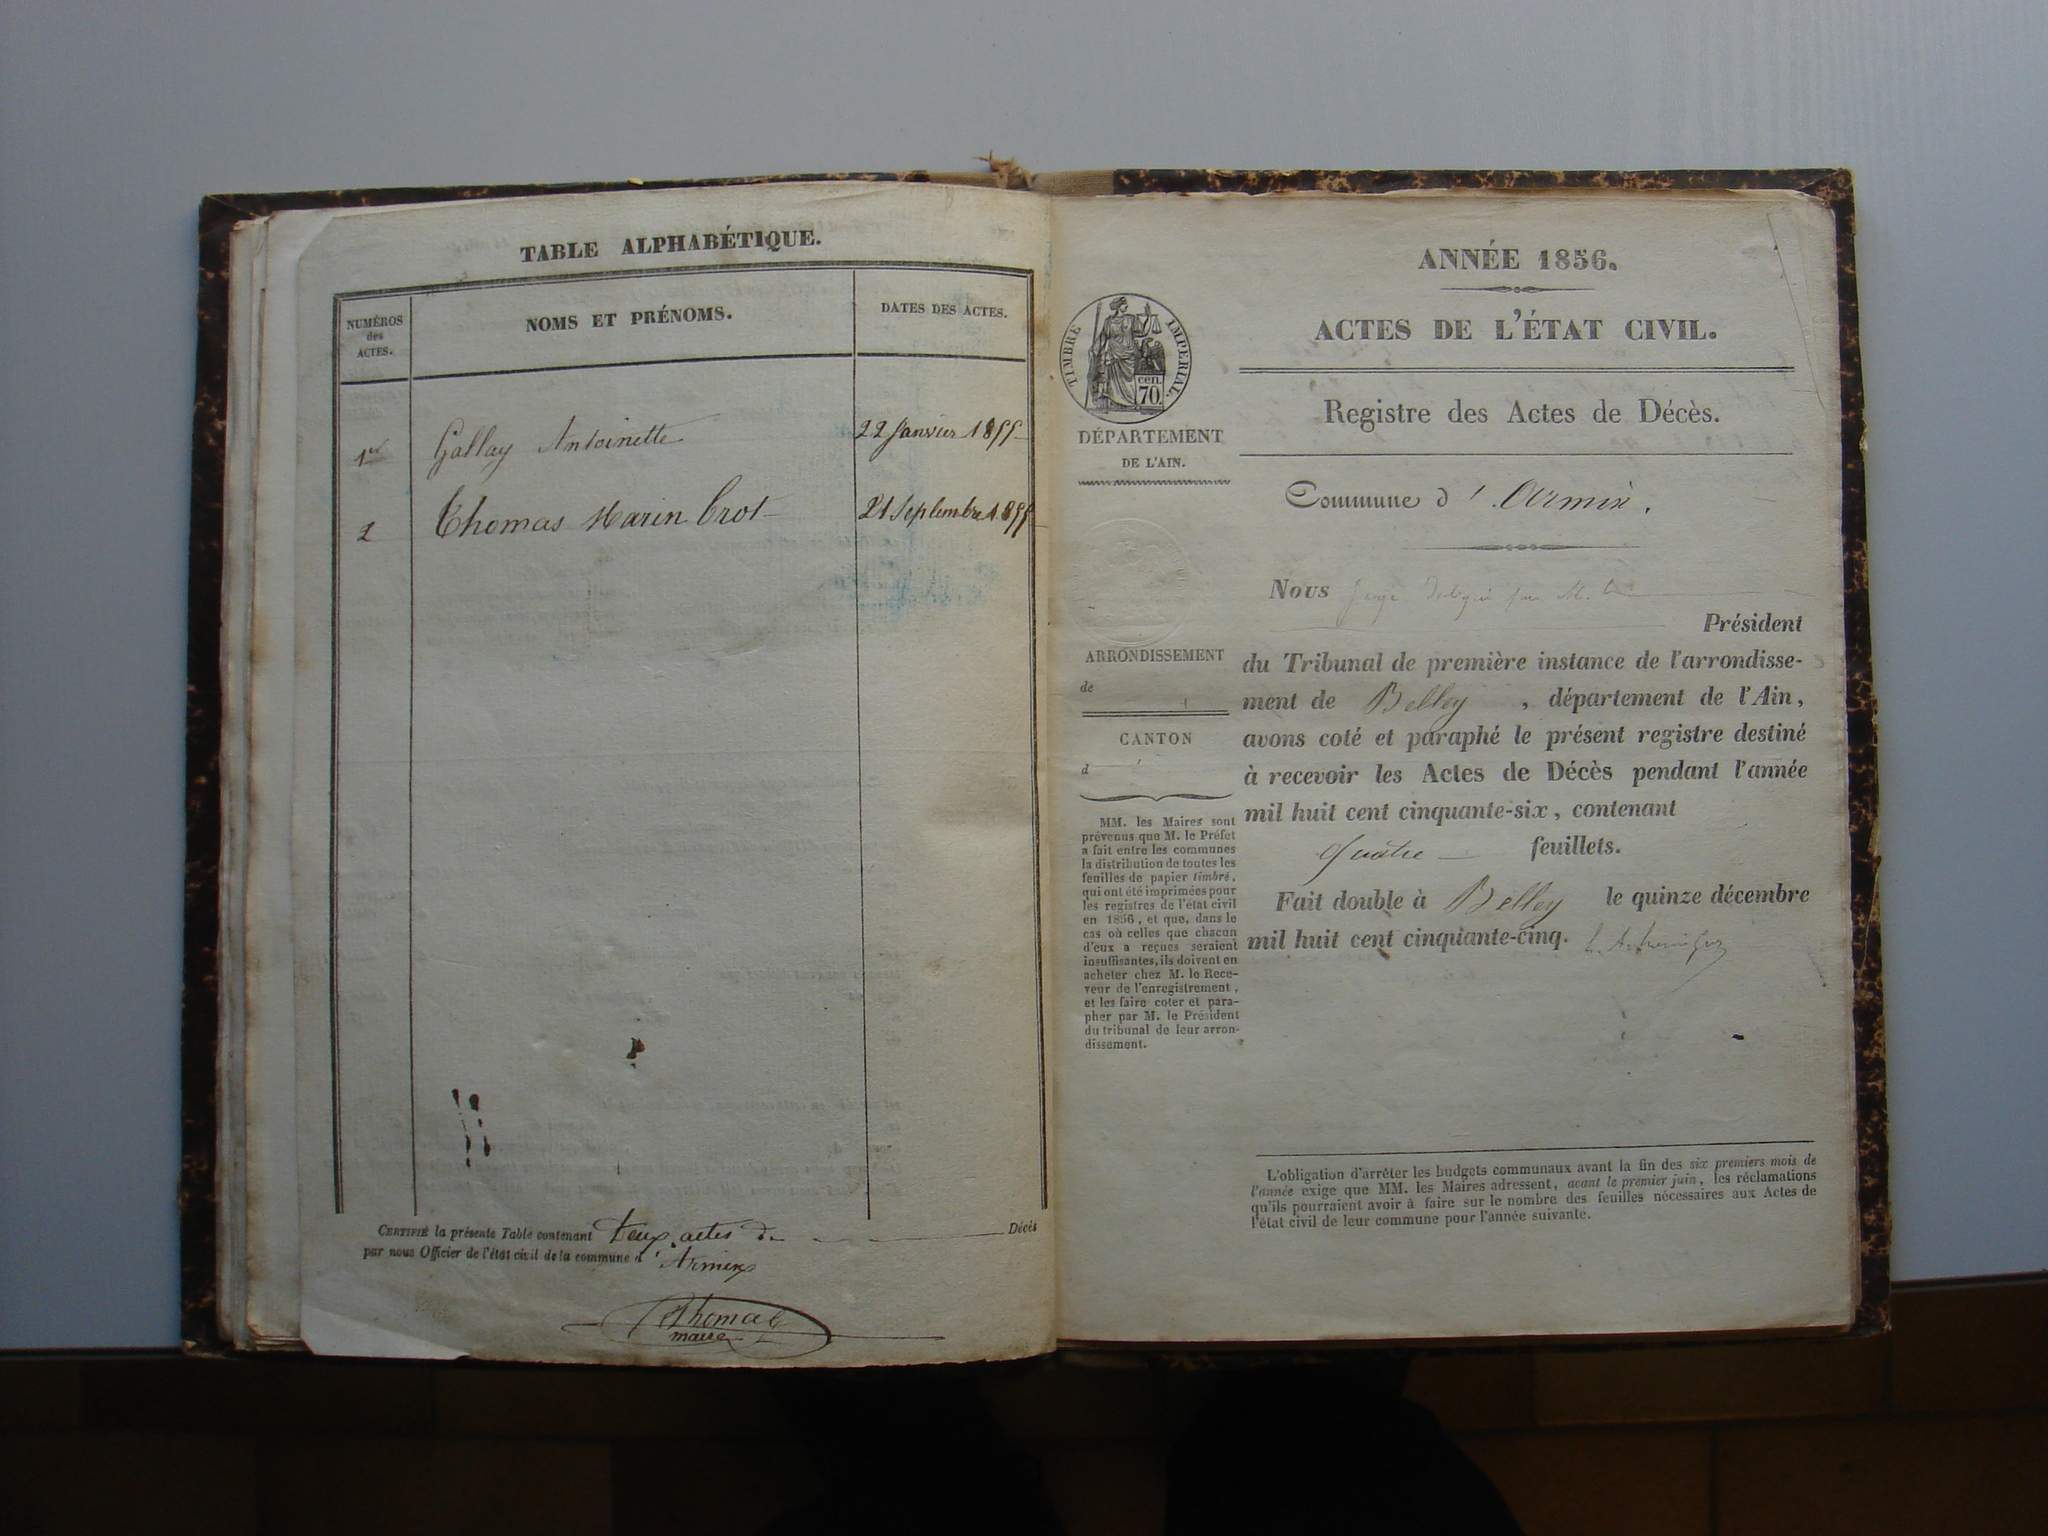 TABLE ALPHABÉTIQUE.
NUMÉROS
des
ACTES.
NOMS ET PRÉNOMS.
DATES DES ACTES.
1er Gallay Antoinette 22 Janvier 1855
2 Thomas Marin Crot 21 Septembre 1855
CERTIFIÉ la présente Table contenant deux actes de Décès
par nous Officier de l'état civil de la commune d'Armix
Thomas
maire
ANNÉE 1856.
ACTES DE L'ÉTAT CIVIL.
Registre des Actes de Décès.
TIMBRE IMPERIAL.
cen.
70.
DÉPARTEMENT
DE L'AIN.
Commune d'Armix.
Nous Juge délégué par M. le
Président
du Tribunal de première instance de l'arrondisse-
ment de Belley, département de l'Ain,
avons coté et paraphé le présent registre destiné
à recevoir les Actes de Décès pendant l'année
mil huit cent cinquante-six, contenant
quatre feuillets.
Fait double à Belley le quinze décembre
mil huit cent cinquante-cinq.
ARRONDISSEMENT
de
CANTON
d
MM. les Maires sont
prévenus que M. le Préfet
a fait entre les communes
la distribution de toutes les
feuilles de papier timbré,
qui ont été imprimées pour
les registres de l'état civil
en 1856, et que, dans le
cas où celles que chacun
d'eux a reçues seraient
insuffisantes, ils doivent en
acheter chez M. le Rece-
veur de l'enregistrement,
et les faire coter et para-
pher par M. le Président
du tribunal de leur arron-
dissement.
L'obligation d'arrêter les budgets communaux avant la fin des six premiers mois de
l'année exige que MM. les Maires adressent, avant le premier juin, les réclamations
qu'ils pourraient avoir à faire sur le nombre des feuilles nécessaires aux Actes de
l'état civil de leur commune pour l'année suivante.